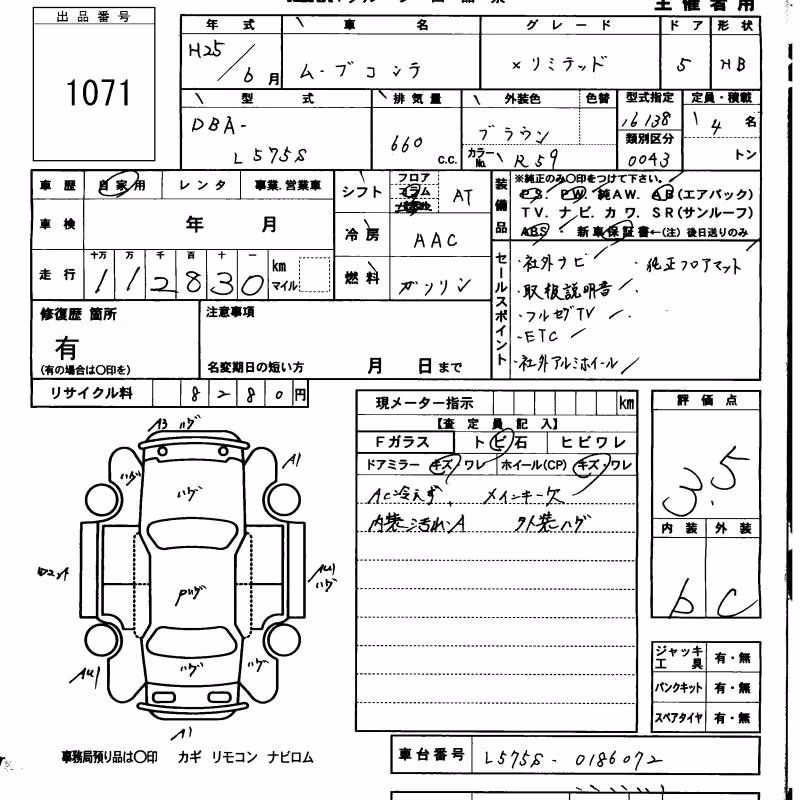 主催者用
出品番号
1071
年式 車名 グレード ドア 形状
H25/6月 ムーブコンテ Xリミテッド 5 HB
型式 排気量 外装色 色替 型式指定 定員・積載
DBA-L575S 660 c.c. ブラウン カラーNo. R59 16138 類別区分 0043 4名 トン
車歴 自家用 レンタ 事業.営業車
車検 年 月
走行 十万 万 千 百 十 一 112830 km マイル
シフト フロア コラム AT
冷房 AAC
燃料 ガソリン
装備品
※純正のみ〇印をつけて下さい。
PS. PW. 純AW. AB(エアバック)
TV. ナビ. カワ. SR(サンルーフ)
ABS・ 新車保証書←(注) 後日送りのみ
セールスポイント
・社外ナビ ・純正フロアマット
・取扱説明書
・フルセグTV
・ETC
・社外アルミホイール
修復歴 箇所
有
(有の場合は〇印を)
注意事項
名変期日の短い方 月 日まで
リサイクル料 8280円
現メーター指示 km
【査定員記入】
Fガラス トビ石 ヒビワレ
ドアミラー キズ・ワレ ホイール(CP) キズ・ワレ
AC冷えず、 メインキー欠
内装汚れA 外装ハゲ
評価点
3.5
内装 外装
b C
A3 ハゲ
ハゲ
A1
ハゲ
ハゲ
Pハゲ
ハゲ
ハゲ
AU1
A1
ジャッキ工具 有・無
パンクキット 有・無
スペアタイヤ 有・無
事務局預り品は〇印 カギ リモコン ナビロム
車台番号 L575S-0186072